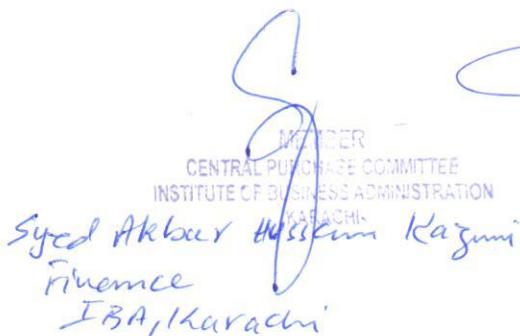 MEMBER
CENTRAL PURCHASE COMMITTEE
INSTITUTE OF BUSINESS ADMINISTRATION
KARACHI.
Syed Akbar Hussain Kazmi
Finance
IBA, Karachi